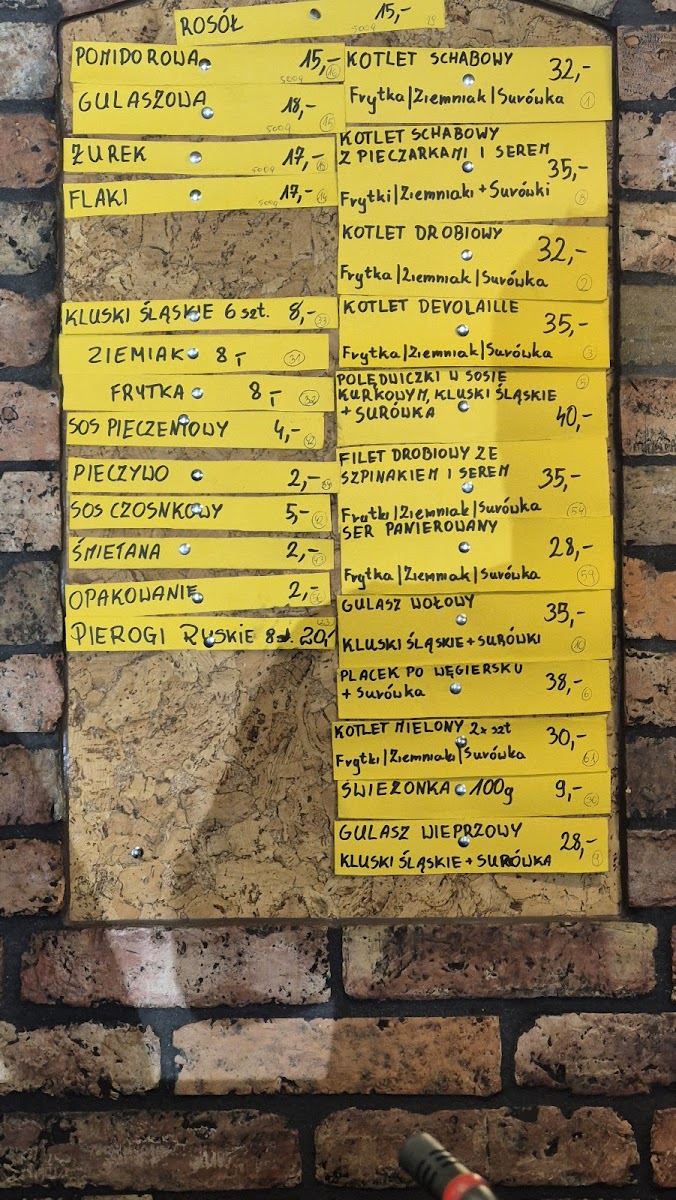 ROSÓŁ 15,-
500g 19
POMIDOROWA 15,-
500g 16
GULASZOWA 18,-
500g 15
ŻUREK 17,-
500g
FLAKI 17,-
500g 14
KLUSKI ŚLĄSKIE 6 szt. 8,- 33
ZIEMIAK 8,- 31
FRYTKA 8,- 32
SOS PIECZENIOWY 4,-
PIECZYWO 2,-
SOS CZOSNKOWY 5,-
ŚMIETANA 2,-
OPAKOWANIE 2,-
PIEROGI RUSKIE 8szt. 20,-
KOTLET SCHABOWY 32,-
Frytka/Ziemniak/Surówka 1
KOTLET SCHABOWY
Z PIECZARKAMI I SEREM 35,-
Frytki/Ziemniaki + Surówki
KOTLET DROBIOWY 32,-
Frytka/Ziemniak/Surówka 2
KOTLET DEVOLAILLE 35,-
Frytka/Ziemniak/Surówka 3
POLĘDWICZKI W SOSIE 5
KURKOWYM, KLUSKI ŚLĄSKIE
+ SURÓWKA 40,-
FILET DROBIOWY ZE
SZPINAKIEM I SEREM 35,-
Frytki/Ziemniak/Surówka 54
SER PANIEROWANY 28,-
Frytka/Ziemniak/Surówka 59
GULASZ WOŁOWY 35,-
KLUSKI ŚLĄSKIE + SURÓWKI 10
PLACEK PO WĘGIERSKU 38,-
+ Surówka 6
KOTLET MIELONY 2x szt 30,-
Frytki/Ziemniaki/Surówka 61
ŚWIEŻONKA 100g 9,- 30
GULASZ WIEPRZOWY 28,-
KLUSKI ŚLĄSKIE + SURÓWKA 9